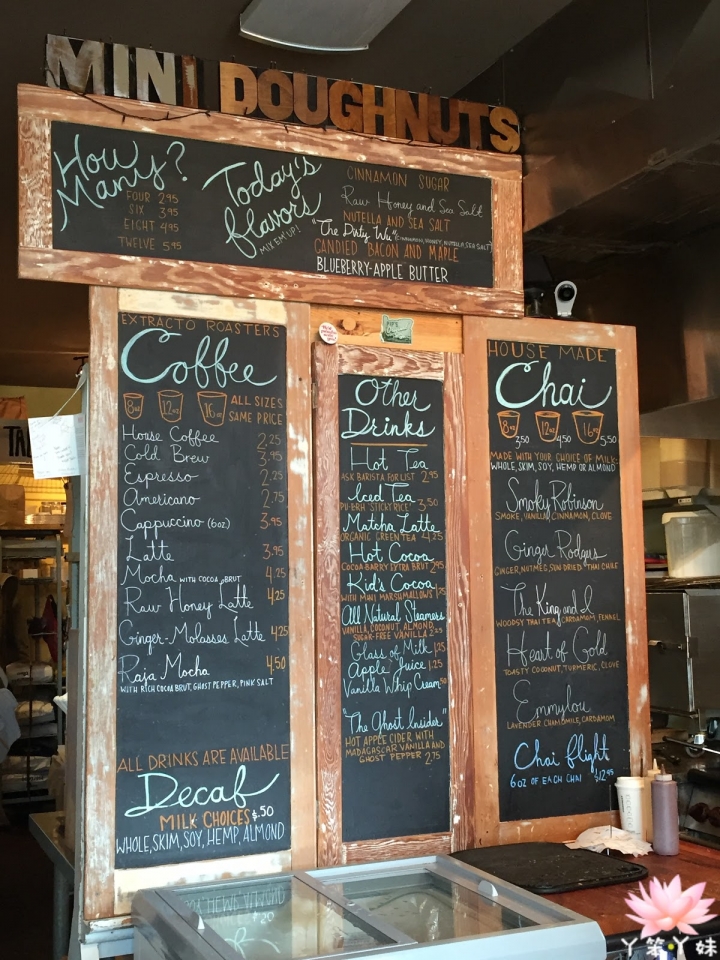 MINI DOUGHNUTS
How Many?
FOUR 2.95
SIX 3.95
EIGHT 4.95
TWELVE 5.95
Today's flavors
MIX EM UP!
CINNAMON SUGAR
Raw Honey and Sea Salt
NUTELLA AND SEA SALT
"The Dirty Wu" (CINNAMON, HONEY, NUTELLA, SEA SALT)
CANDIED BACON AND MAPLE
BLUEBERRY-APPLE BUTTER
EXTRACTO ROASTERS
Coffee
8oz 12oz 16oz ALL SIZES
SAME PRICE
House Coffee 2.25
Cold Brew 3.95
Espresso 2.25
Americano 2.75
Cappuccino (6oz) 3.95
Latte 3.95
Mocha WITH COCOA BRUT 4.25
Raw Honey Latte 4.25
Ginger-Molasses Latte 4.25
Raja Mocha 4.50
WITH RICH COCOA BRUT, GHOST PEPPER, PINK SALT
ALL DRINKS ARE AVAILABLE
Decaf
MILK CHOICES $.50
WHOLE, SKIM, SOY, HEMP, ALMOND
Other
Drinks
Hot Tea
ASK BARISTA FOR LIST 2.95
Iced Tea
PU-ERH "STICKY RICE" 3.50
Matcha Latte
ORGANIC GREEN TEA 4.25
Hot Cocoa
COCOA BARRY EXTRA BRUT 2.95
Kid's Cocoa
WITH MINI MARSHMALLOWS 1.75
All Natural Steamers
VANILLA, COCONUT, ALMOND,
SUGAR-FREE VANILLA 2.25
Glass of Milk 1.25
Apple Juice 1.25
Vanilla Whip Cream .50
"The Ghost Insider"
HOT APPLE CIDER WITH
MADAGASCAR VANILLA AND
GHOST PEPPER 2.75
HOUSE MADE
Chai
8oz 12oz 16oz
3.50 4.50 5.50
MADE WITH YOUR CHOICE OF MILK:
WHOLE, SKIM, SOY, HEMP OR ALMOND
Smoky Robinson
SMOKE, VANILLA, CINNAMON, CLOVE
Ginger Rodgers
GINGER, NUTMEG, SUN DRIED THAI CHILE
The King and I
WOODSY THAI TEA, CARDAMOM, FENNEL
Heart of Gold
TOASTY COCONUT, TURMERIC, CLOVE
Emmylou
LAVENDER CHAMOMILE, CARDAMOM
Chai flight
6 OZ OF EACH CHAI $12.95
丫笨丫妹